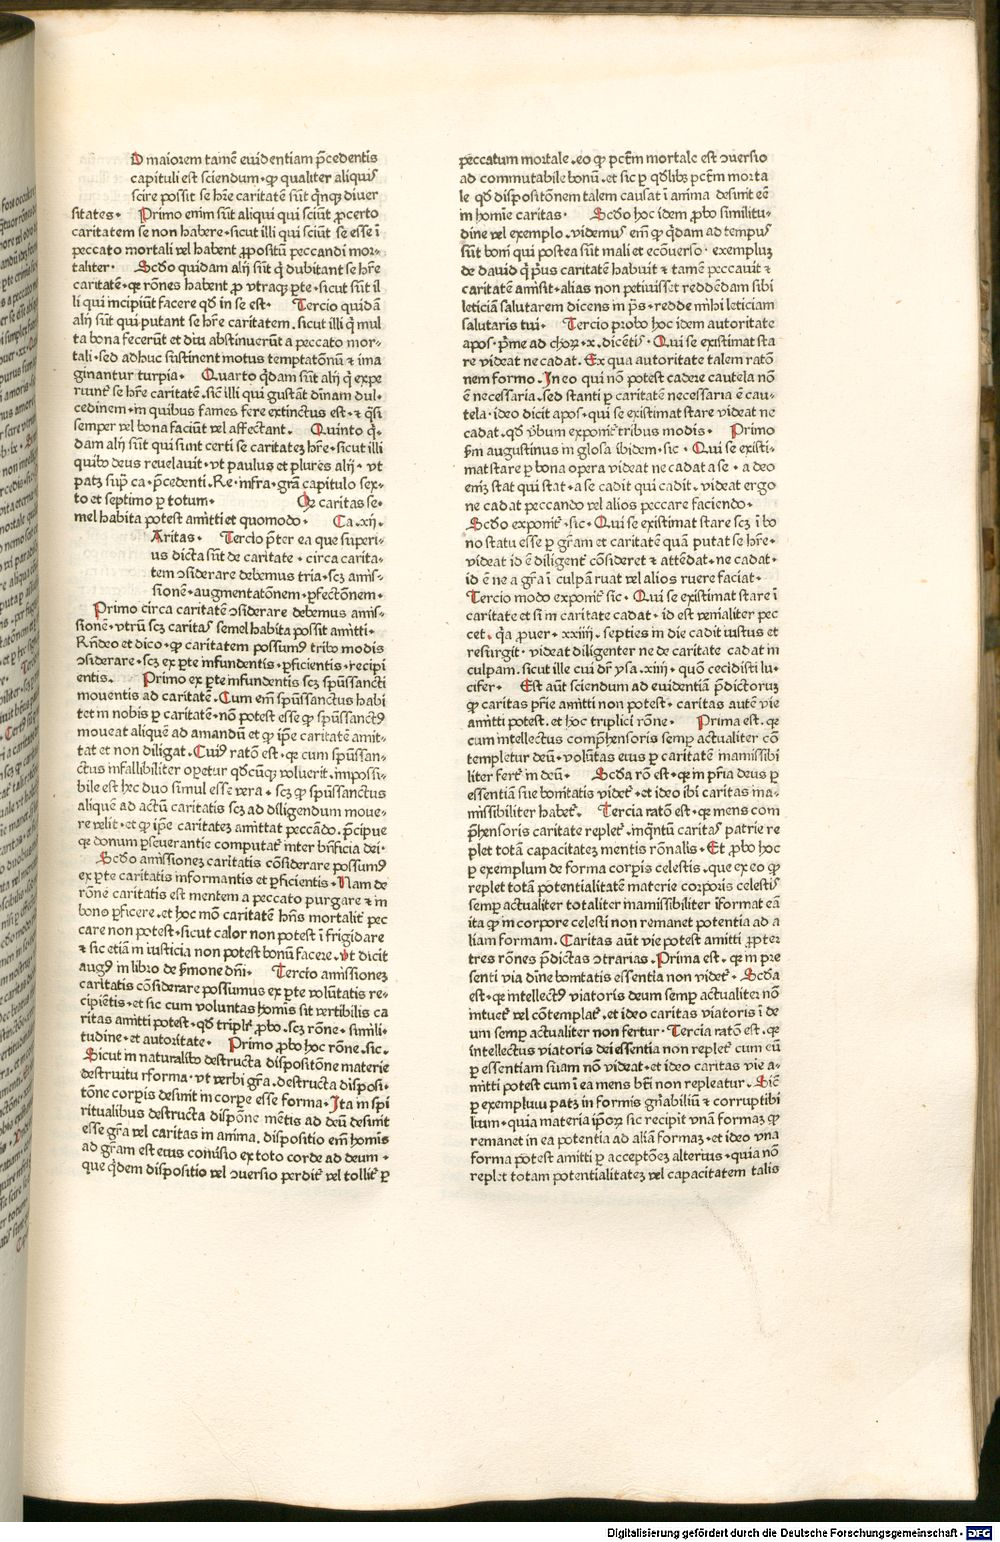 D maiorem tamē euidentiam p̄cedentis
capituli est sciendum· ꝙ qualiter aliquis
scire possit se hr̄e caritatē sūt q̄nqꝫ diuer
sitates· Primo enim sūt aliqui qui sciūt ꝓcerto
caritatem se non habere·sicut illi qui sciūt se esse ī
peccato mortali vel habent ꝓpositū peccandi mor-
taliter· Scd̄o quidam alij sūt q̄ dubitant se hr̄e
caritatē·qꝛ rōnes habent ꝓ vtraqꝫ ꝑte·sicut sūt il
li qui incipiūt facere qd̄ in se est· Tercio quidā
alij sūt qui putant se hr̄e caritatem.sicut illi q̄ mul
ta bona fecerūt et diu abstinuerūt a peccato mor-
tali·sed adhuc sustinent motus temptatōnū ⁊ ima
ginantur turpia· Quarto q̄dam sūt alij q̄ expe
riunt᷑ se hr̄e caritatē.sic̄ illi qui gustāt dīnam dul-
cedinem·in quibus fames fere extinctus est·⁊ q̄si
semper vel bona faciūt vel affectant. Quinto q̄-
dam alij sūt qui sunt certi se caritateꝫ hr̄e·sicut illi
quibꝰ deus reuelauit·vt paulus et plures alij·vt
patꝫ supͣ ca·p̄cedenti.Re·infra·grā capitulo sex-
to et septimo ꝑ totum· Qꝛ caritas se-
mel habita potest amitti et quomodo· Ca.xij.
Aritas· Tercio p̄ter ea que superi-
us dicta sūt de caritate·circa carita-
tem ɔsiderare debemus tria·scꝫ amis-
sionē·augmentatōnem·ꝑfectōnem·
Primo circa caritatē ɔsiderare debemus amis-
sionē·vtrū scꝫ caritas semel habita possit amitti·
Rn̄deo et dico·ꝙ caritatem possumꝰ tribꝰ modis
ɔsiderare·scꝫ ex ꝑte infundentis·ꝑficientis·recipi
entis. Primo ex ꝑte infundentis scꝫ spūssancti
mouentis ad caritatē.Cum em̄ spūssanctus habi
tet in nobis ꝑ caritatē·nō potest esse ꝙ spūssanctꝰ
moueat aliquē ad amandū et ꝙ ip̄e caritatē amit-
tat et non diligat.Cuiꝰ ratō est·qꝛ cum spūssan-
ctus infallibiliter oꝑetur qd̄cūqꝫ voluerit.impossi-
bile est hec duo simul esse vera·scꝫ ꝙ spūssanctus
aliquē ad actū caritatis scꝫ ad diligendum moue-
re velit·et ꝙ ip̄e caritateꝫ amittat peccādo.p̄cipue
qꝛ donum ꝑseuerantie computat᷑ inter bn̄ficia dei·
Scd̄o amissioneꝫ caritatis cōsiderare possumꝰ
ex ꝑte caritatis informantis et ꝑficientis·Nam de
rōne caritatis est mentem a peccato purgare ⁊ in
bono ꝑficere.et hoc mō caritatē hn̄s mortalit᷑ pec
care non potest·sicut calor non potest ī frigidare
⁊ sic etiā in iusticia non potest bonū facere.vt dicit
augꝰ in libro de s̄mone dn̄i· Tercio amissioneꝫ
caritatis cōsiderare possumus ex ꝑte volūtatis re-
cipiētis·et sic cum voluntas homis sit vertibilis ca
ritas amitti potest·qd̄ triplr̄ ꝓbo.scꝫ rōne·simili-
tudine·et autoritate· Primo ꝓbo hoc rōne.sic.
Sicut in naturalibꝰ destructa dispositōne materie
destruitur forma·vt verbi grā.destructa disposi-
tōne corꝑis desinit in corꝑe esse forma·Ita in spi
ritualibus destructa dispōne mētis ad deū desinit
esse grā vel caritas in anima.dispositio em̄ homis
ad grām est eius conūsio ex toto corde ad deum·
que q̄dem dispositio vel ɔuersio perdit᷑ vel tollit᷑ ꝑ
peccatum mortale.eo ꝙ pctm̄ mortale est ɔuersio
ad commutabile bonū.et sic ꝑ qd̄libꝫ pctm̄ morta
le qd̄ dispositōnem talem causat ī anima desinit eē
in homie caritas· Scd̄o hoc idem ꝓbo similitu-
dine vel exemplo.videmus em̄ ꝙ q̄dam ad tempus
sūt boni qui postea sūt mali et ecōuerso·exempluꝫ
de dauid q̄ p̄us caritatē habuit ⁊ tamē peccauit ⁊
caritatē amisit·alias non petiuisset reddēdam sibi
leticiā salutarem dicens in ps̄·redde mihi leticiam
salutaris tui· Tercio probo hoc idem autoritate
apos·p̄me ad choꝝ·x.dicētis·Qui se existimat sta
re videat ne cadat.Ex qua autoritate talem ratō
nem formo.In eo qui nō potest cadere cautela nō
ē necessaria.sed stanti ꝑ caritatē necessaria ē cau-
tela·ideo dicit apos·qui se existimat stare videat ne
cadat.qd̄ v̄bum exponit᷑ tribus modis· Primo
fm̄ augustinus in glosa ibidem·sic·Qui se existi-
mat stare ꝑ bona opera videat ne cadat a se·a deo
em̄ stat qui stat·a se cadit qui cadit.videat ergo
ne cadat peccando vel alios peccare faciendo·
Scd̄o exponit᷑·sic·Qui se existimat stare scꝫ ī bo
no statu esse ꝑ grām et caritatē quā putat se hr̄e·
videat id ē diligent᷑ cōsideret ⁊ attēdat·ne cadat·
id ē ne a grā ī culpā ruat vel alios ruere faciat·
Tercio modo exponit᷑ sic·Qui se existimat stare ī
caritate et si in caritate cadat·id est venialiter pec
cet.q̄a ꝓuer·xxiiij.septies in die cadit iustus et
resurgit·videat diligenter ne de caritate cadat in
culpam.sicut ille cui dr̄ ysa.xiiij·quō cecidisti lu-
cifer· Est aūt sciendum ad euidentiā p̄dictoruꝫ
ꝙ caritas pr̄ie amitti non potest·caritas autē vie
amitti potest.et hoc triplici rōne· Prima est.qꝛ
cum intellectus comp̄hensoris semꝑ actualiter cō
templetur deū·volūtas eius ꝑ caritatē inamissibi
liter fert᷑ in deū· Scd̄a rō est·qꝛ in pr̄ia deus ꝑ
essentiā siue bonitatis videt᷑·et ideo ibi caritas ina-
missibiliter habet᷑. Tercia ratō est·qꝛ mens com
p̄hensoris caritate replet᷑.inq̄ntū caritas patrie re
plet totā capacitateꝫ mentis rōnalis·Et ꝓbo hoc
ꝑ exemplum de forma corꝑis celestis.que ex eo ꝙ
replet totā potentialitatē materie corporis celestis
semꝑ actualiter totaliter inamissibiliter īformat eā
ita ꝙ in corpore celesti non remanet potentia ad a
liam formam.Caritas aūt vie potest amitti ꝓpter
tres rōnes p̄dictas ɔtrarias.Prima est.qꝛ in pre
senti via diīne bonitatis essentia non videt᷑·Scd̄a
est·qꝛ intellectꝰ viatoris deum semꝑ actualiter nō
intuet᷑ vel cōtemplat᷑.et ideo caritas viatoris ī de
um semꝑ actualiter non fertur·Tercia ratō est.qꝛ
intellectus viatoris dei essentia non replet᷑ cum eū
ꝑ essentiam suam nō videat·et ideo caritas vie a-
mitti potest cum ī ea mens bn̄ti non repleatur.Sic̄
ꝑ exemplum patꝫ in formis gn̄abiliū ⁊ corruptibi
lium·quia materia ip̄oꝝ sic recipit vnā formaꝫ ꝙ
remanet in ea potentia ad aliā formaꝫ·et ideo vna
forma potest amitti ꝑ acceptōeꝫ alterius·quia nō
replet totam potentialitateꝫ vel capacitatem talis
Digitalisierung gefördert durch die Deutsche Forschungsgemeinschaft - DFG